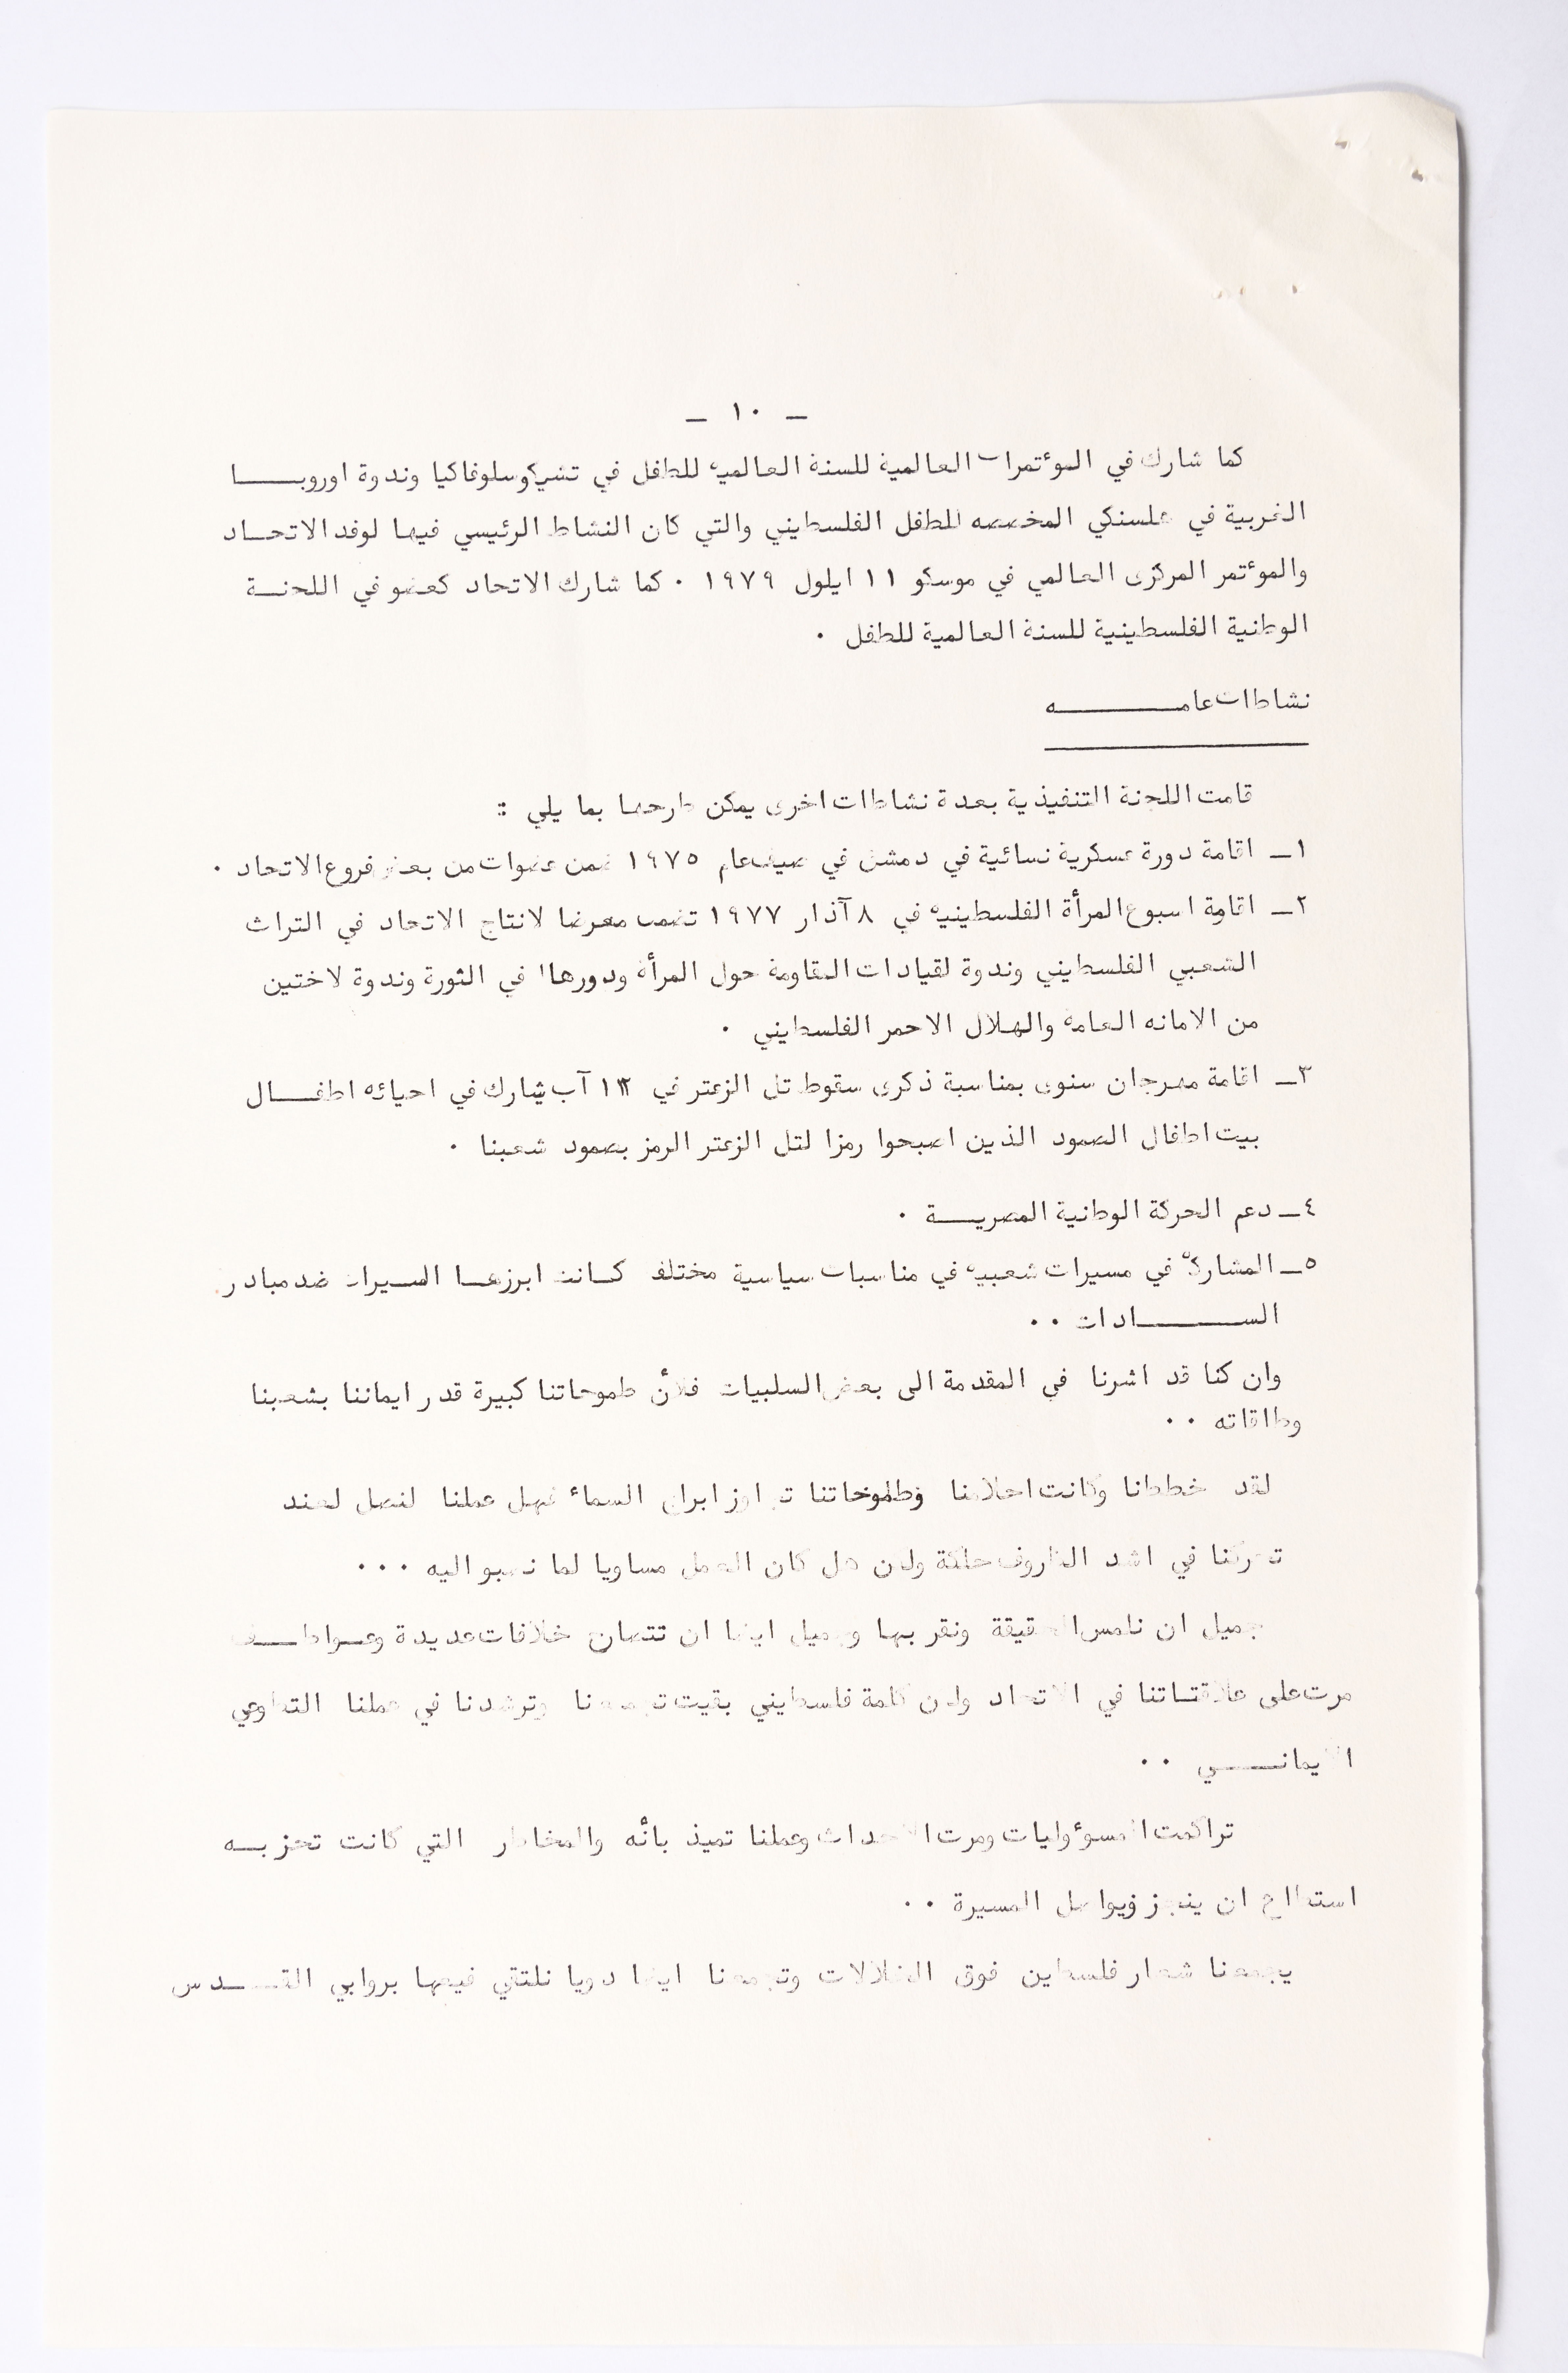 – ١٠ –
كما شارك في المؤتمرات العالمية للسنة العالميه للطفل في تشيكوسلوفاكيا وندوة اوروبــا
الغربية في هلسنكي المخصصه للطفل الفلسطيني والتي كان النشاط الرئيسي فيها لوفد الاتحـاد
والمؤتمر المركزى العالمي في موسكو ١١ ايلول ١٩٧٩ ٠ كما شارك الاتحاد كعضو في اللجنـة
الوطنية الفلسطينية للسنة العالمية للطفل ٠
نشاطات عامــــــه
قامت اللجنة التنفيذية بعدة نشاطات اخرى يمكن طرحها بما يلي :
١ــ اقامة دورة عسكرية نسائية في دمشق في صيف عام ١٩٧٥ ضمن عضوات من بعض فروع الاتحاد ٠
٢ــ اقامة اسبوع المرأة الفلسطينيه في ٨ آذار ١٩٧٧ تضمن معرضا لانتاج الاتحاد في التراث
الشعبي الفلسطيني وندوة لقيادات المقاومة حول المرأة ودورها في الثورة وندوة لاختين
من الامانه العامة والهلال الاحمر الفلسطيني ٠
٣ــ اقامة مهرجان سنوى بمناسبة ذكرى سقوط تل الزعتر في ١٢ آب يشارك في احيائه اطفــال
بيت اطفال الصمود الذين اصبحوا رمزا لتل الزعتر الرمز بصمود شعبنا ٠
٤ــ دعم الحركة الوطنية المصريــة ٠
٥ــ المشاركة في مسيرات شعبيه في مناسبات سياسية مختلفة كـانت ابرزهـا السيرات ضد مبادر
الســــادات ٠٠
وان كنا قد اشرنا في المقدمة الى بعض السلبيات فلأن طموحاتنا كبيرة قدر ايماننا بشعبنا
وطاقاته ٠٠
لقد خططنا وكانت احلامنا وطموحاتنا السماء فهل عملنا لنصل لعند
تحركنا في اشد الظروف حلكة ولكن هل كان العمل مساويا لما نصبو اليه ٠٠٠
جميل ان نلمس الحقيقة ونقر بها وجميل ايضا ان خلافات عديدة وعـواطـف
مرت على علاقتـاتنا في الاتحاد ولكن كلمة فلسطيني بقيت تجمعنا وترشدنا في عملنا التطوعي
الايمانــي ٠٠
تراكمت المسؤوليات ومرت الاحداث وعملنا تميز بانه والمخاطر التي كانت تحز بــه
استطاع ان ينجز ويواصل المسيرة ٠٠
يجمعنا شعار فلسطين فوق وتجمعنا ايضا نلتقي فيها بروابي القــدس